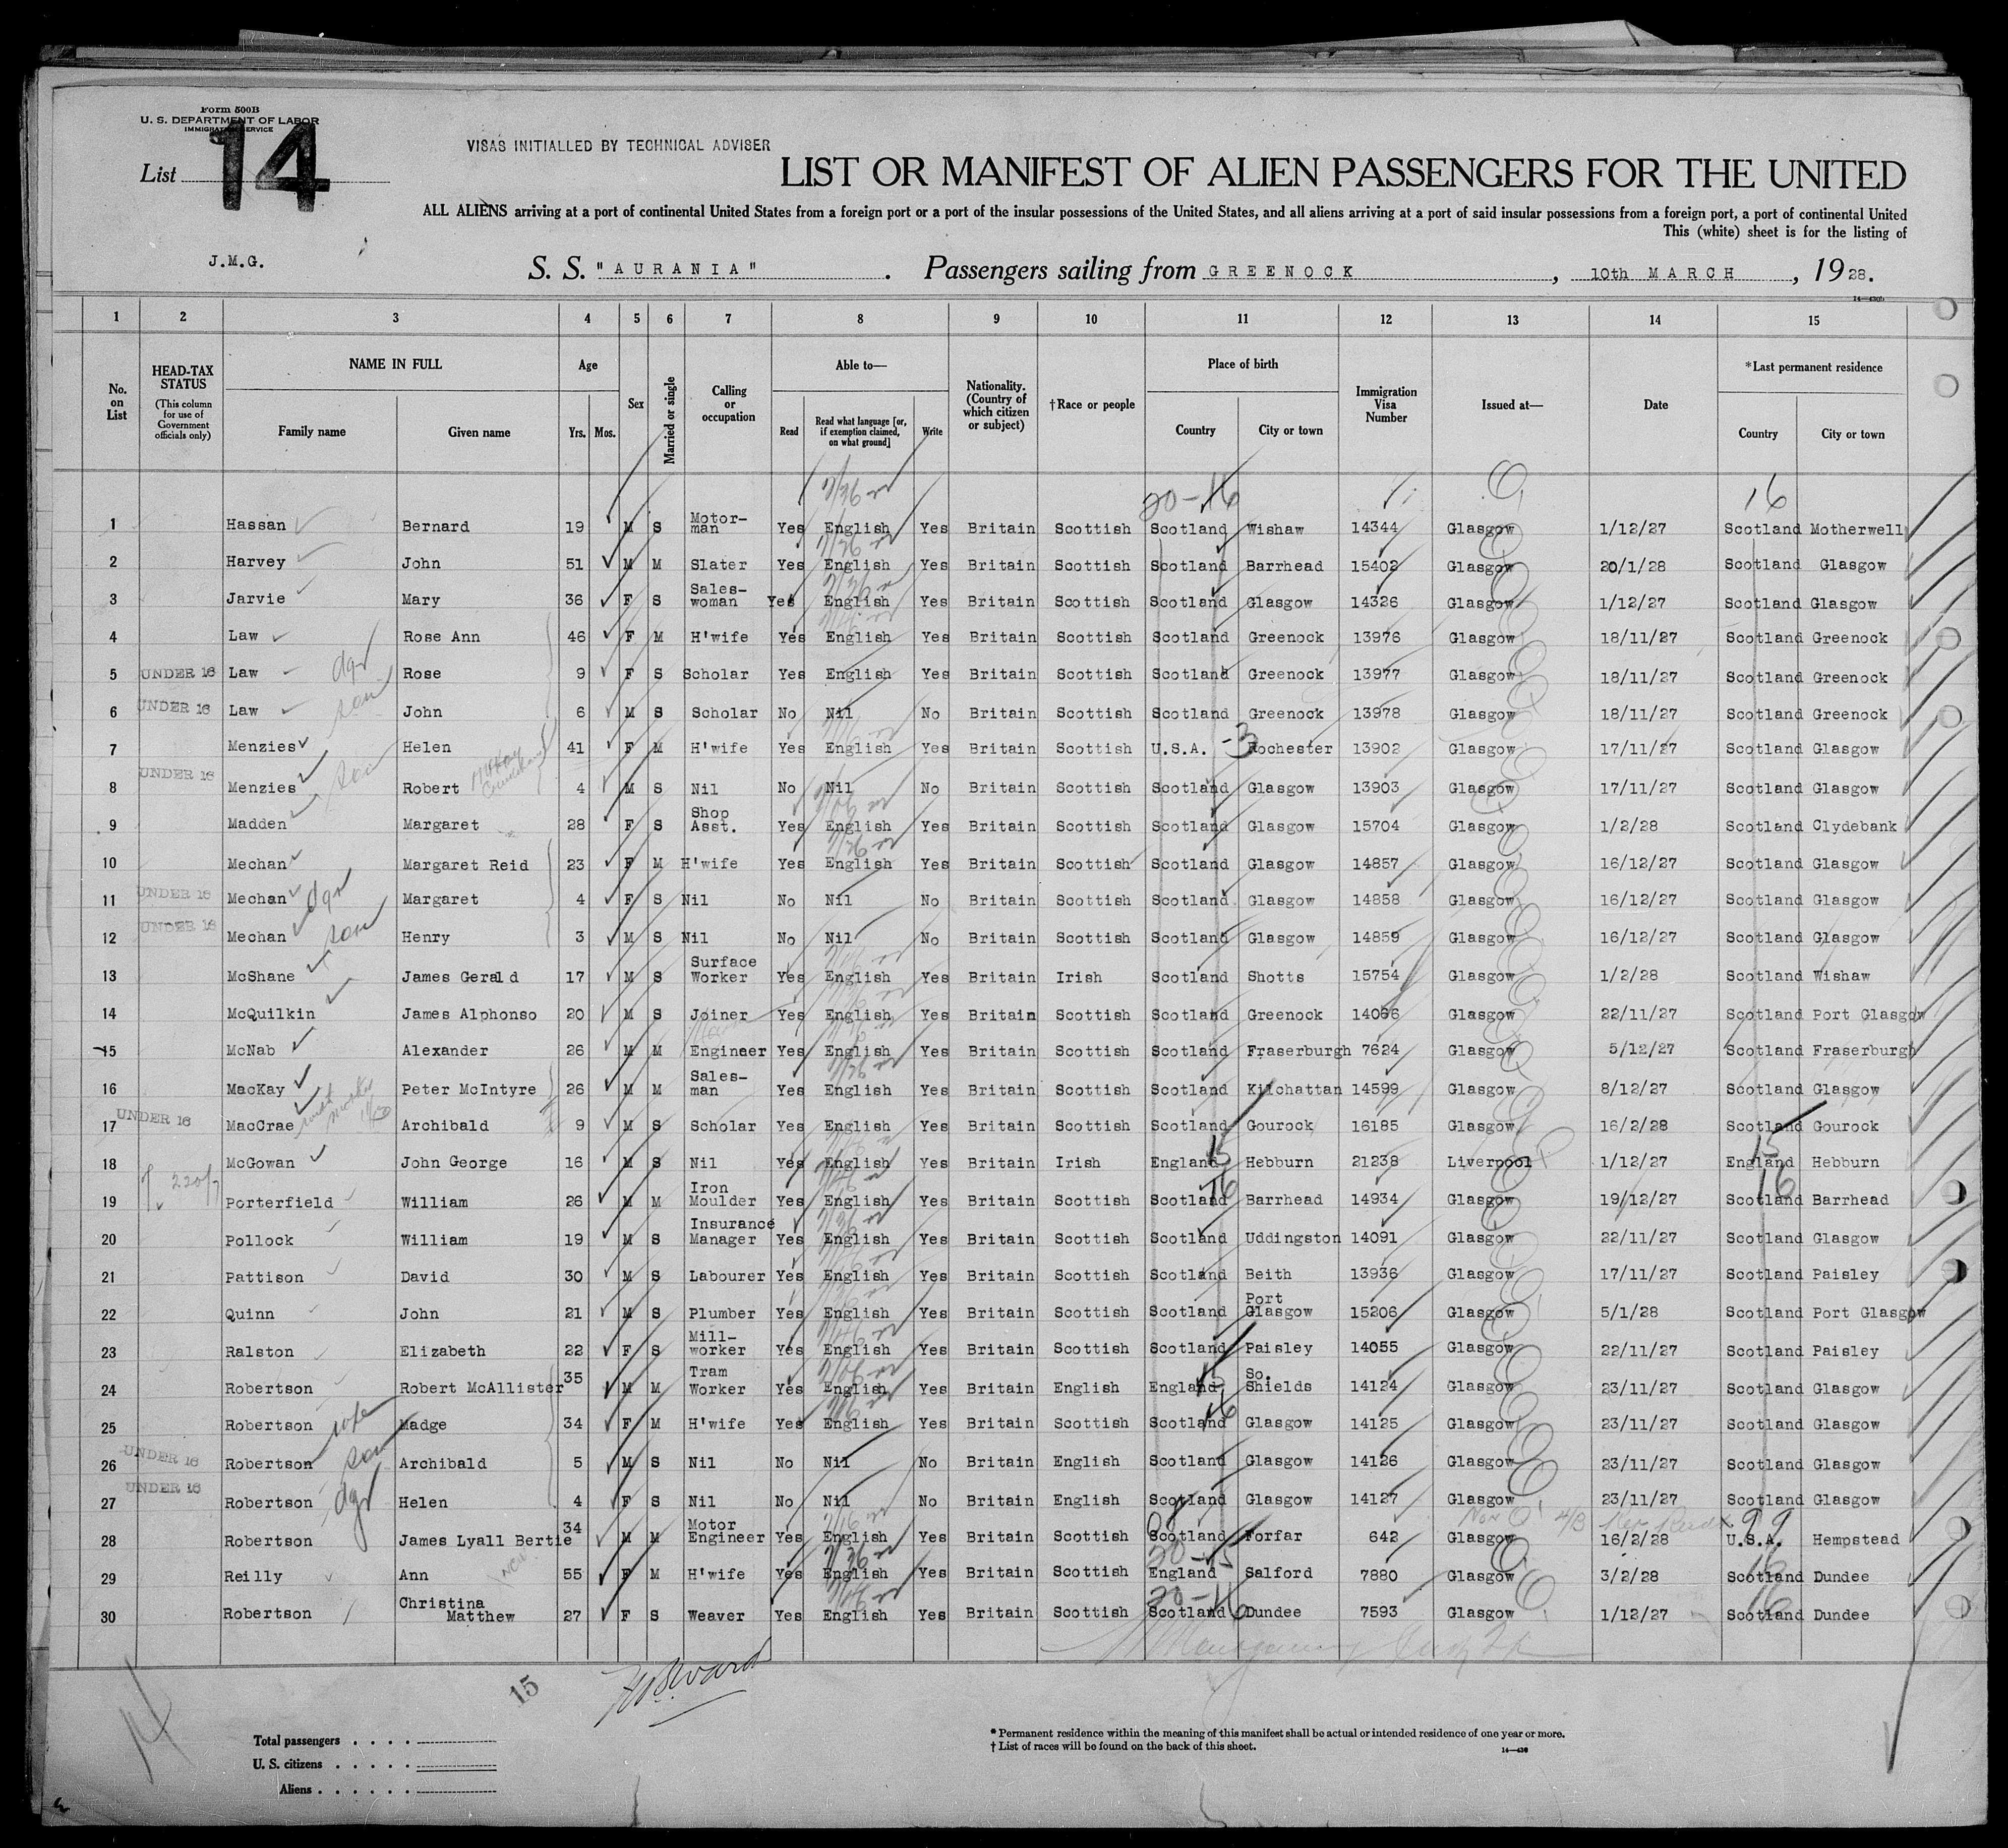 Form 500B
U. S. DEPARTMENT OF LABOR
IMMIGRATION SERVICE
List 14
VISAS INITIALLED BY TECHNICAL ADVISER
LIST OR MANIFEST OF ALIEN PASSENGERS FOR THE UNITED
ALL ALIENS arriving at a port of continental United States from a foreign port or a port of the insular possessions of the United States, and all aliens arriving at a port of said insular possessions from a foreign port, a port of continental United
This (white) sheet is for the listing of
J.M.G.
S. S. "AURANIA" . Passengers sailing from GREENOCK , 10th MARCH , 1928.
1 2 3 4 5 6 7 8 9 10 11 12 13 14 15
No. on List
HEAD-TAX STATUS (This column for use of Government officials only)
NAME IN FULL
Family name Given name
Age
Yrs. Mos.
Sex
Married or single
Calling or occupation
Able to—
Read Read what language [or, if exemption claimed, on what ground] Write
Nationality. (Country of which citizen or subject)
†Race or people
Place of birth
Country City or town
Immigration Visa Number
Issued at—
Date
*Last permanent residence
Country City or town
20-16 16
1 Hassan Bernard 19 M S Motor-man Yes English Yes Britain Scottish Scotland Wishaw 14344 Glasgow 1/12/27 Scotland Motherwell
2 Harvey John 51 M M Slater Yes English Yes Britain Scottish Scotland Barrhead 15402 Glasgow 20/1/28 Scotland Glasgow
3 Jarvie Mary 36 F S Sales-woman Yes English Yes Britain Scottish Scotland Glasgow 14326 Glasgow 1/12/27 Scotland Glasgow
4 Law Rose Ann 46 F M H'wife Yes English Yes Britain Scottish Scotland Greenock 13976 Glasgow 18/11/27 Scotland Greenock
5 UNDER 16 Law dgr Rose 9 F S Scholar Yes English Yes Britain Scottish Scotland Greenock 13977 Glasgow 18/11/27 Scotland Greenock
6 UNDER 16 Law son John 6 M S Scholar No Nil No Britain Scottish Scotland Greenock 13978 Glasgow 18/11/27 Scotland Greenock
7 Menzies Helen 41 F M H'wife Yes English Yes Britain Scottish U.S.A. -3 Rochester 13902 Glasgow 17/11/27 Scotland Glasgow
8 UNDER 16 Menzies son Robert 4 M S Nil No Nil No Britain Scottish Scotland Glasgow 13903 Glasgow 17/11/27 Scotland Glasgow
9 Madden Margaret 28 F S Shop Asst. Yes English Yes Britain Scottish Scotland Glasgow 15704 Glasgow 1/2/28 Scotland Clydebank
10 Mechan Margaret Reid 23 F M H'wife Yes English Yes Britain Scottish Scotland Glasgow 14857 Glasgow 16/12/27 Scotland Glasgow
11 UNDER 16 Mechan dgr Margaret 4 F S Nil No Nil No Britain Scottish Scotland Glasgow 14858 Glasgow 16/12/27 Scotland Glasgow
12 UNDER 16 Mechan son Henry 3 M S Nil No Nil No Britain Scottish Scotland Glasgow 14859 Glasgow 16/12/27 Scotland Glasgow
13 McShane James Gerald 17 M S Surface Worker Yes English Yes Britain Irish Scotland Shotts 15754 Glasgow 1/2/28 Scotland Wishaw
14 McQuilkin James Alphonso 20 M S Joiner Yes English Yes Britain Scottish Scotland Greenock 14066 Glasgow 22/11/27 Scotland Port Glasgow
15 McNab Alexander 26 M M Engineer Yes English Yes Britain Scottish Scotland Fraserburgh 7624 Glasgow 5/12/27 Scotland Fraserburgh
16 MacKay Peter McIntyre 26 M M Sales-man Yes English Yes Britain Scottish Scotland Kilchattan 14599 Glasgow 8/12/27 Scotland Glasgow
17 UNDER 16 MacCrae Archibald 9 M S Scholar Yes English Yes Britain Scottish Scotland Gourock 16185 Glasgow 16/2/28 Scotland Gourock
18 McGowan John George 16 M S Nil Yes English Yes Britain Irish England 15 Hebburn 21238 Liverpool 1/12/27 England 15 Hebburn
19 Porterfield William 26 M M Iron Moulder Yes English Yes Britain Scottish Scotland 16 Barrhead 14934 Glasgow 19/12/27 Scotland 16 Barrhead
20 Pollock William 19 M S Insurance Manager Yes English Yes Britain Scottish Scotland Uddingston 14091 Glasgow 22/11/27 Scotland Glasgow
21 Pattison David 30 M S Labourer Yes English Yes Britain Scottish Scotland Beith 13936 Glasgow 17/11/27 Scotland Paisley
22 Quinn John 21 M S Plumber Yes English Yes Britain Scottish Scotland Port Glasgow 15206 Glasgow 5/1/28 Scotland Port Glasgow
23 Ralston Elizabeth 22 F S Mill-worker Yes English Yes Britain Scottish Scotland Paisley 14055 Glasgow 22/11/27 Scotland Paisley
24 Robertson Robert McAllister 35 M M Tram Worker Yes English Yes Britain English England 15 So. Shields 14124 Glasgow 23/11/27 Scotland Glasgow
25 Robertson wife Madge 34 F M H'wife Yes English Yes Britain Scottish Scotland 16 Glasgow 14125 Glasgow 23/11/27 Scotland Glasgow
26 UNDER 16 Robertson son Archibald 5 M S Nil No Nil No Britain English Scotland Glasgow 14126 Glasgow 23/11/27 Scotland Glasgow
27 UNDER 16 Robertson dgr Helen 4 F S Nil No Nil No Britain English Scotland Glasgow 14127 Glasgow 23/11/27 Scotland Glasgow
28 Robertson James Lyall Bertie 34 M M Motor Engineer Yes English Yes Britain Scottish Scotland Forfar 642 Glasgow 16/2/28 U.S.A. 99 Hempstead
29 Reilly Ann 55 F M H'wife Yes English Yes Britain Scottish England 20-15 Salford 7880 Glasgow 3/2/28 Scotland 16 Dundee
30 Robertson Christina Matthew 27 F S Weaver Yes English Yes Britain Scottish Scotland 20-16 Dundee 7593 Glasgow 1/12/27 Scotland 16 Dundee
14
15
Total passengers
U. S. citizens
Aliens
* Permanent residence within the meaning of this manifest shall be actual or intended residence of one year or more.
† List of races will be found on the back of this sheet.
14—430